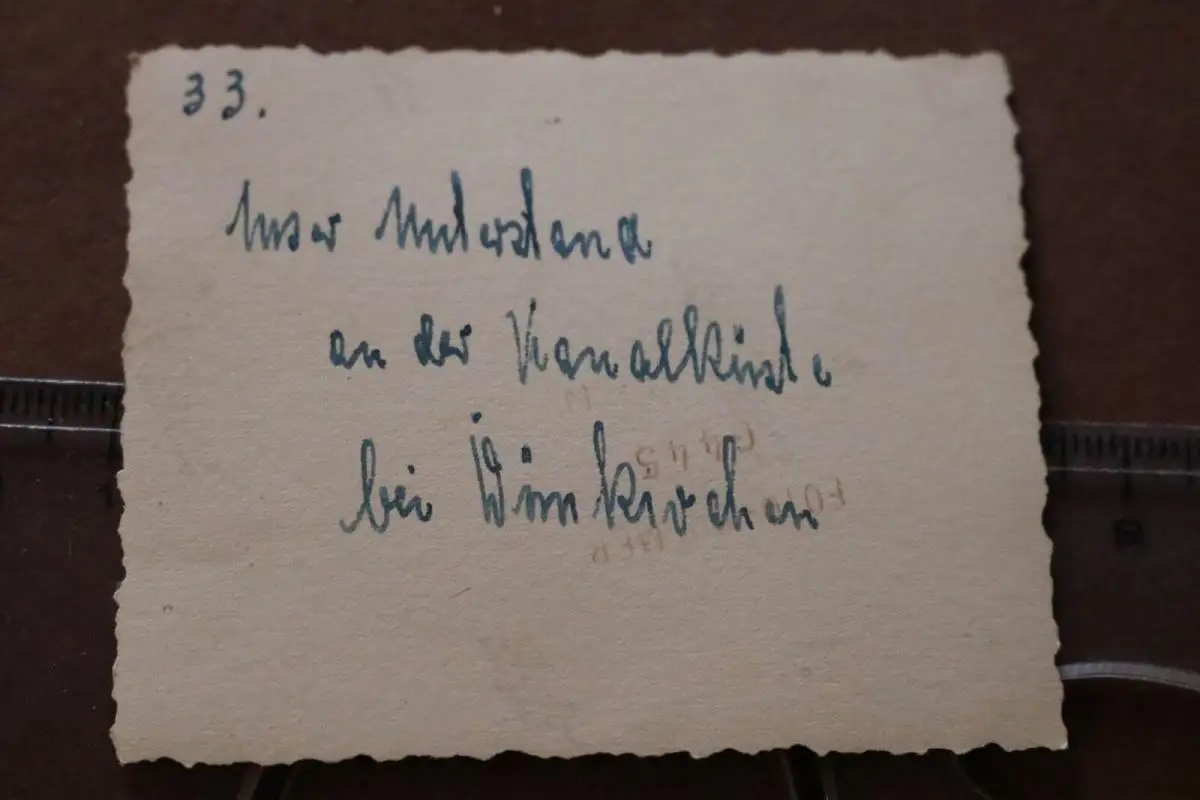 33.
Unser Unterstand
an der Kanalküste
bei Dünkirchen